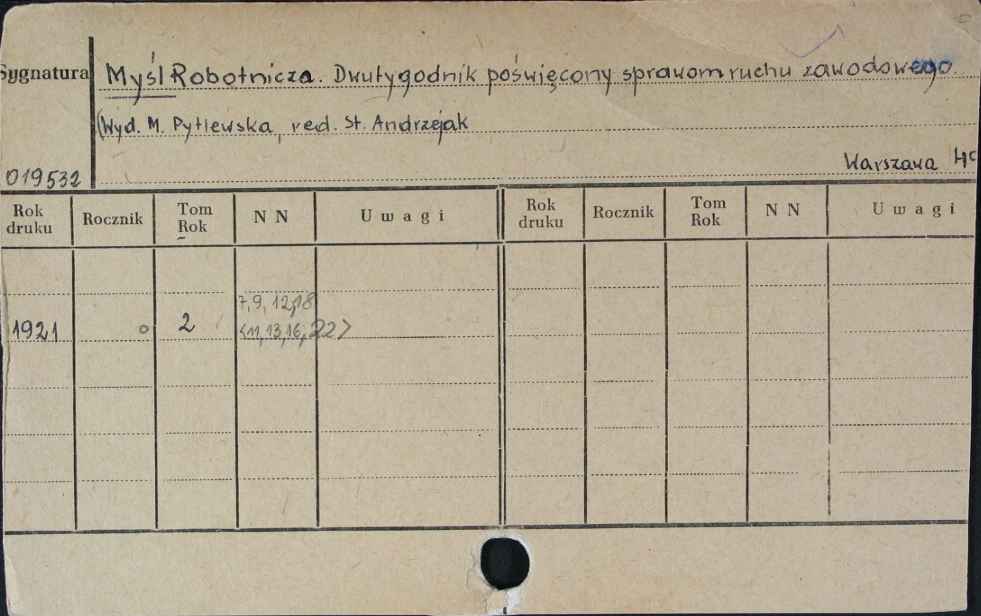 Sygnatura Myśl Robotnicza. Dwutygodnik poświęcony sprawom ruchu zawodowego.
(Wyd. M. Pytlewska, red. St. Andrzejak
019532 Warszawa 4°
Rok druku Rocznik Tom Rok NN Uwagi Rok druku Rocznik Tom Rok NN Uwagi
7, 9, 12, 18
1921 o 2 <11, 13, 16, 22>